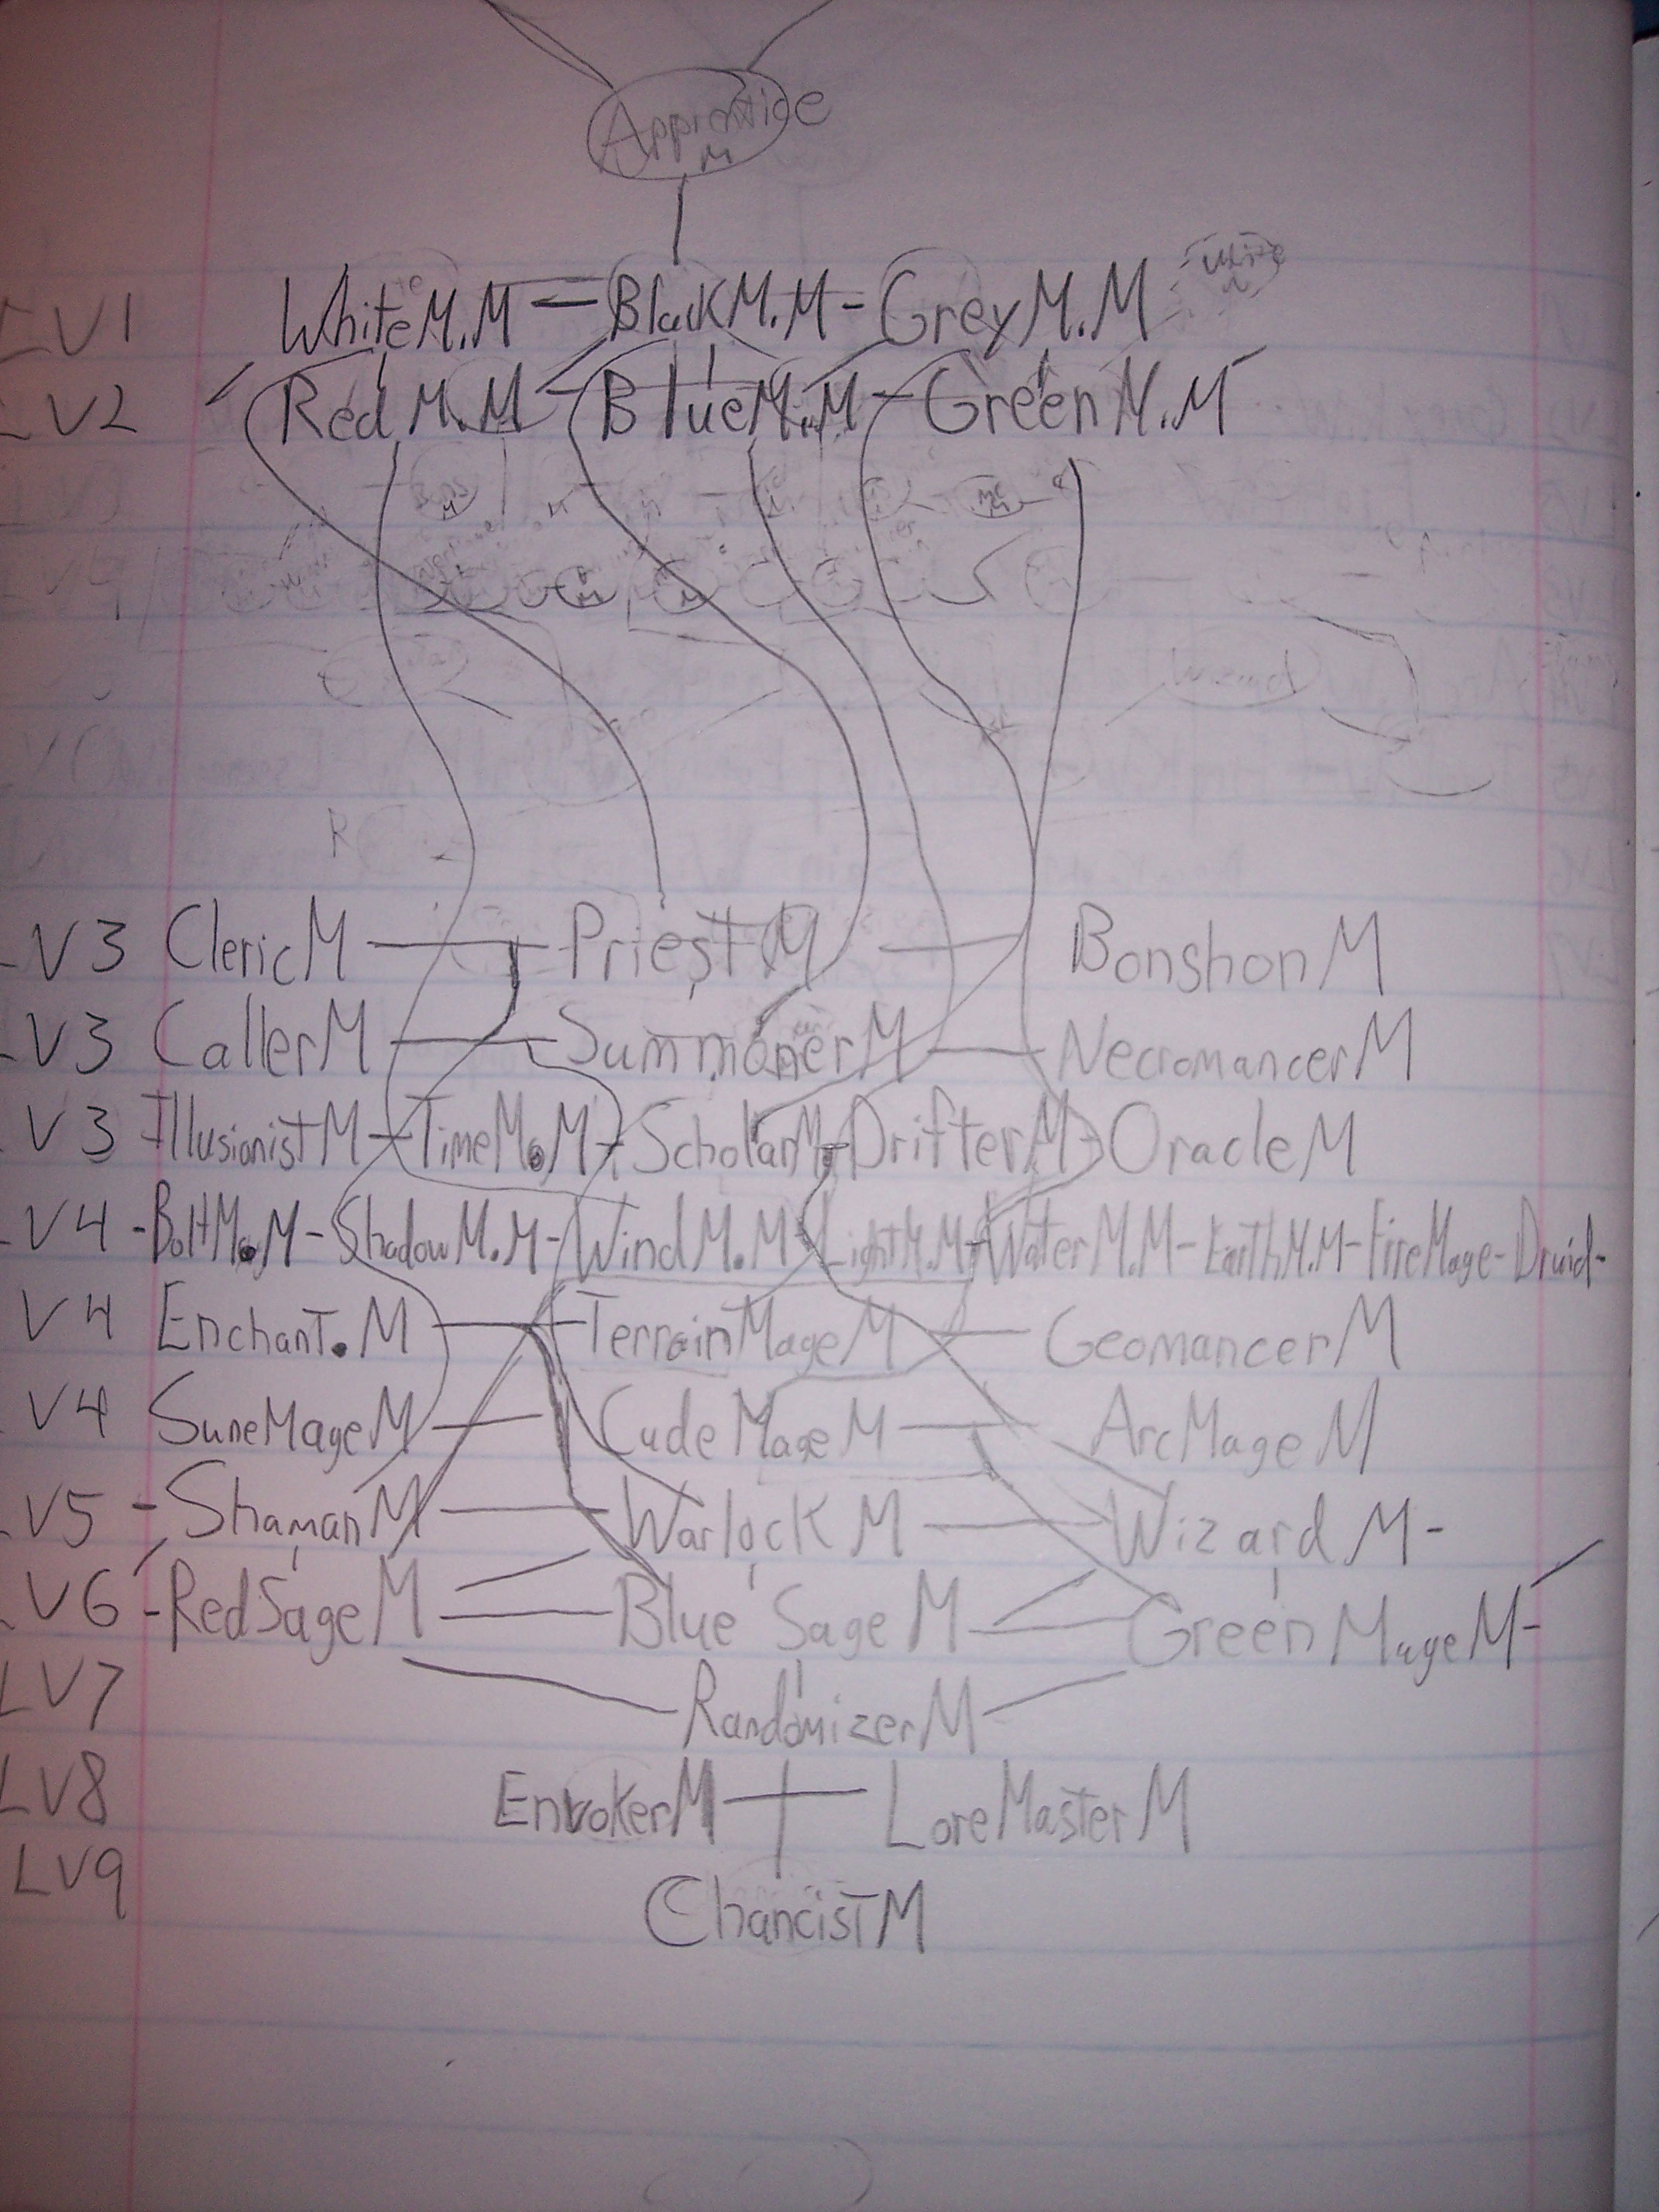 Apprentice
M
LV1 White M.M - Black M.M - Grey M.M
LV2 Red M.M - Blue M.M - Green M.M
LV3 Cleric M Priest M Bonshon M
LV3 Caller M Summoner M Necromancer M
LV3 Illusionist M - Time M.M - Scholar M - Drifter M - Oracle M
LV4 - Bolt M.M - Shadow M.M - Wind M.M - Light M.M - Water M.M - Earth M.M - Fire Mage - Druid -
LV4 Enchant. M Terrain Mage M Geomancer M
LV4 Sune Mage M Cude Mage M Arc Mage M
LV5 - Shaman M Warlock M Wizard M -
LV6 - Red Sage M Blue Sage M Green Mage M -
LV7 Randomizer M
LV8 Envoker M Lore Master M
LV9
Chancist M